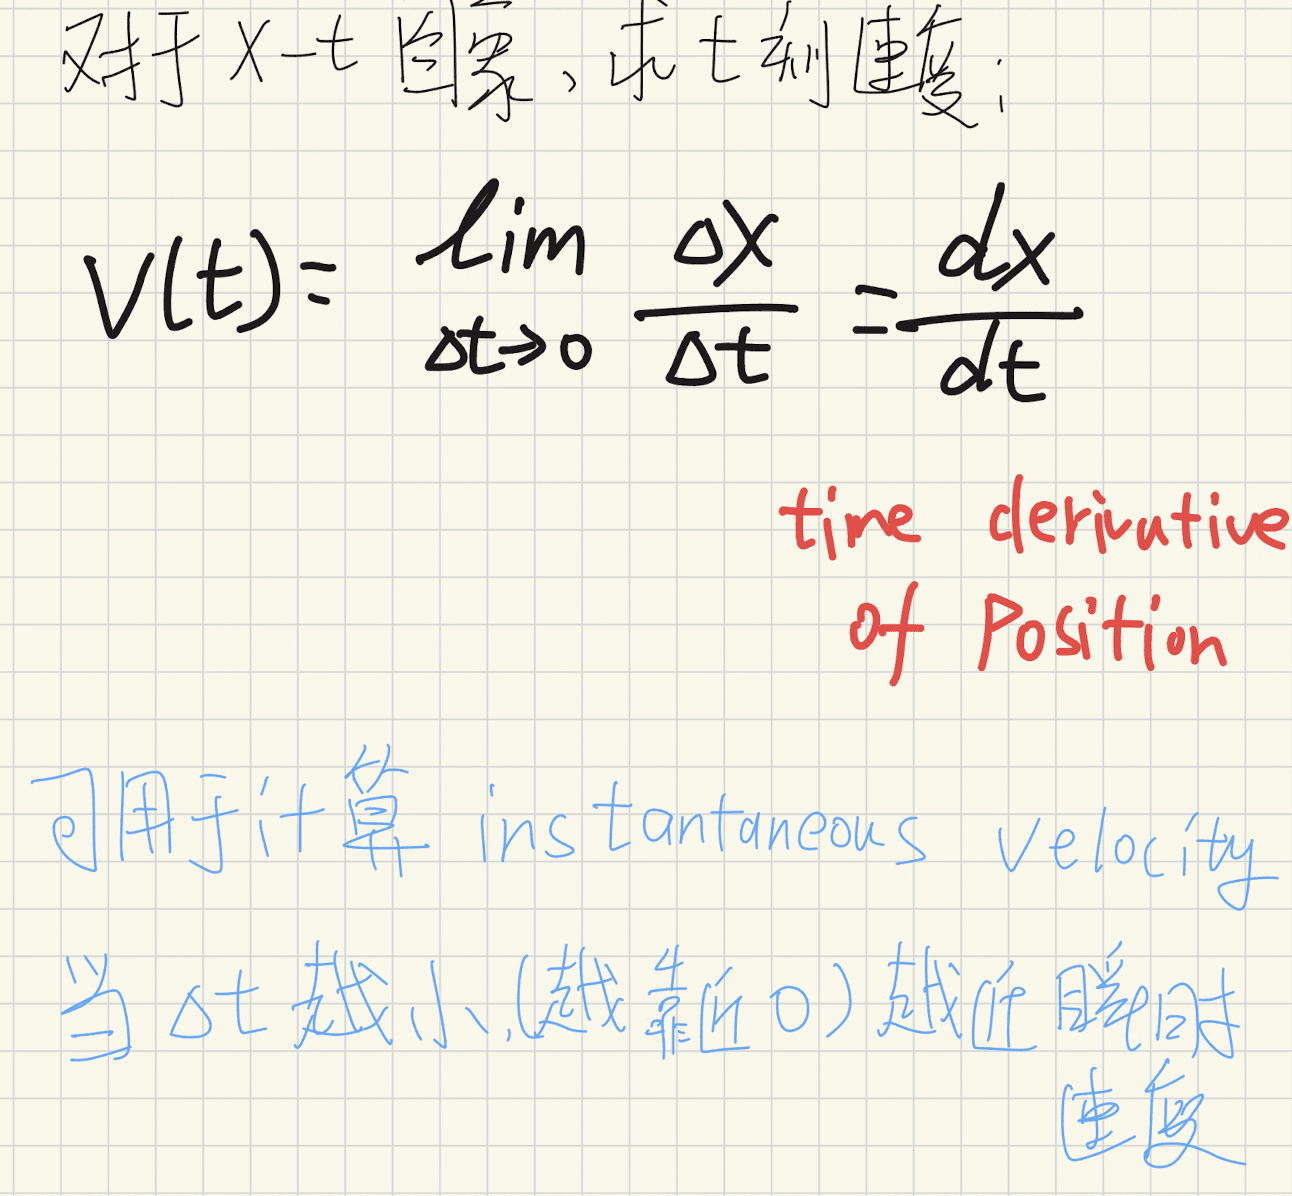 对于 x-t 图象，求 t 刻速度：
V(t) = lim Δx/Δt = dx/dt
Δt→0
time derivative
of Position
可用于计算 instantaneous velocity
当 Δt 越小，(越靠近 0) 越近瞬时
速度